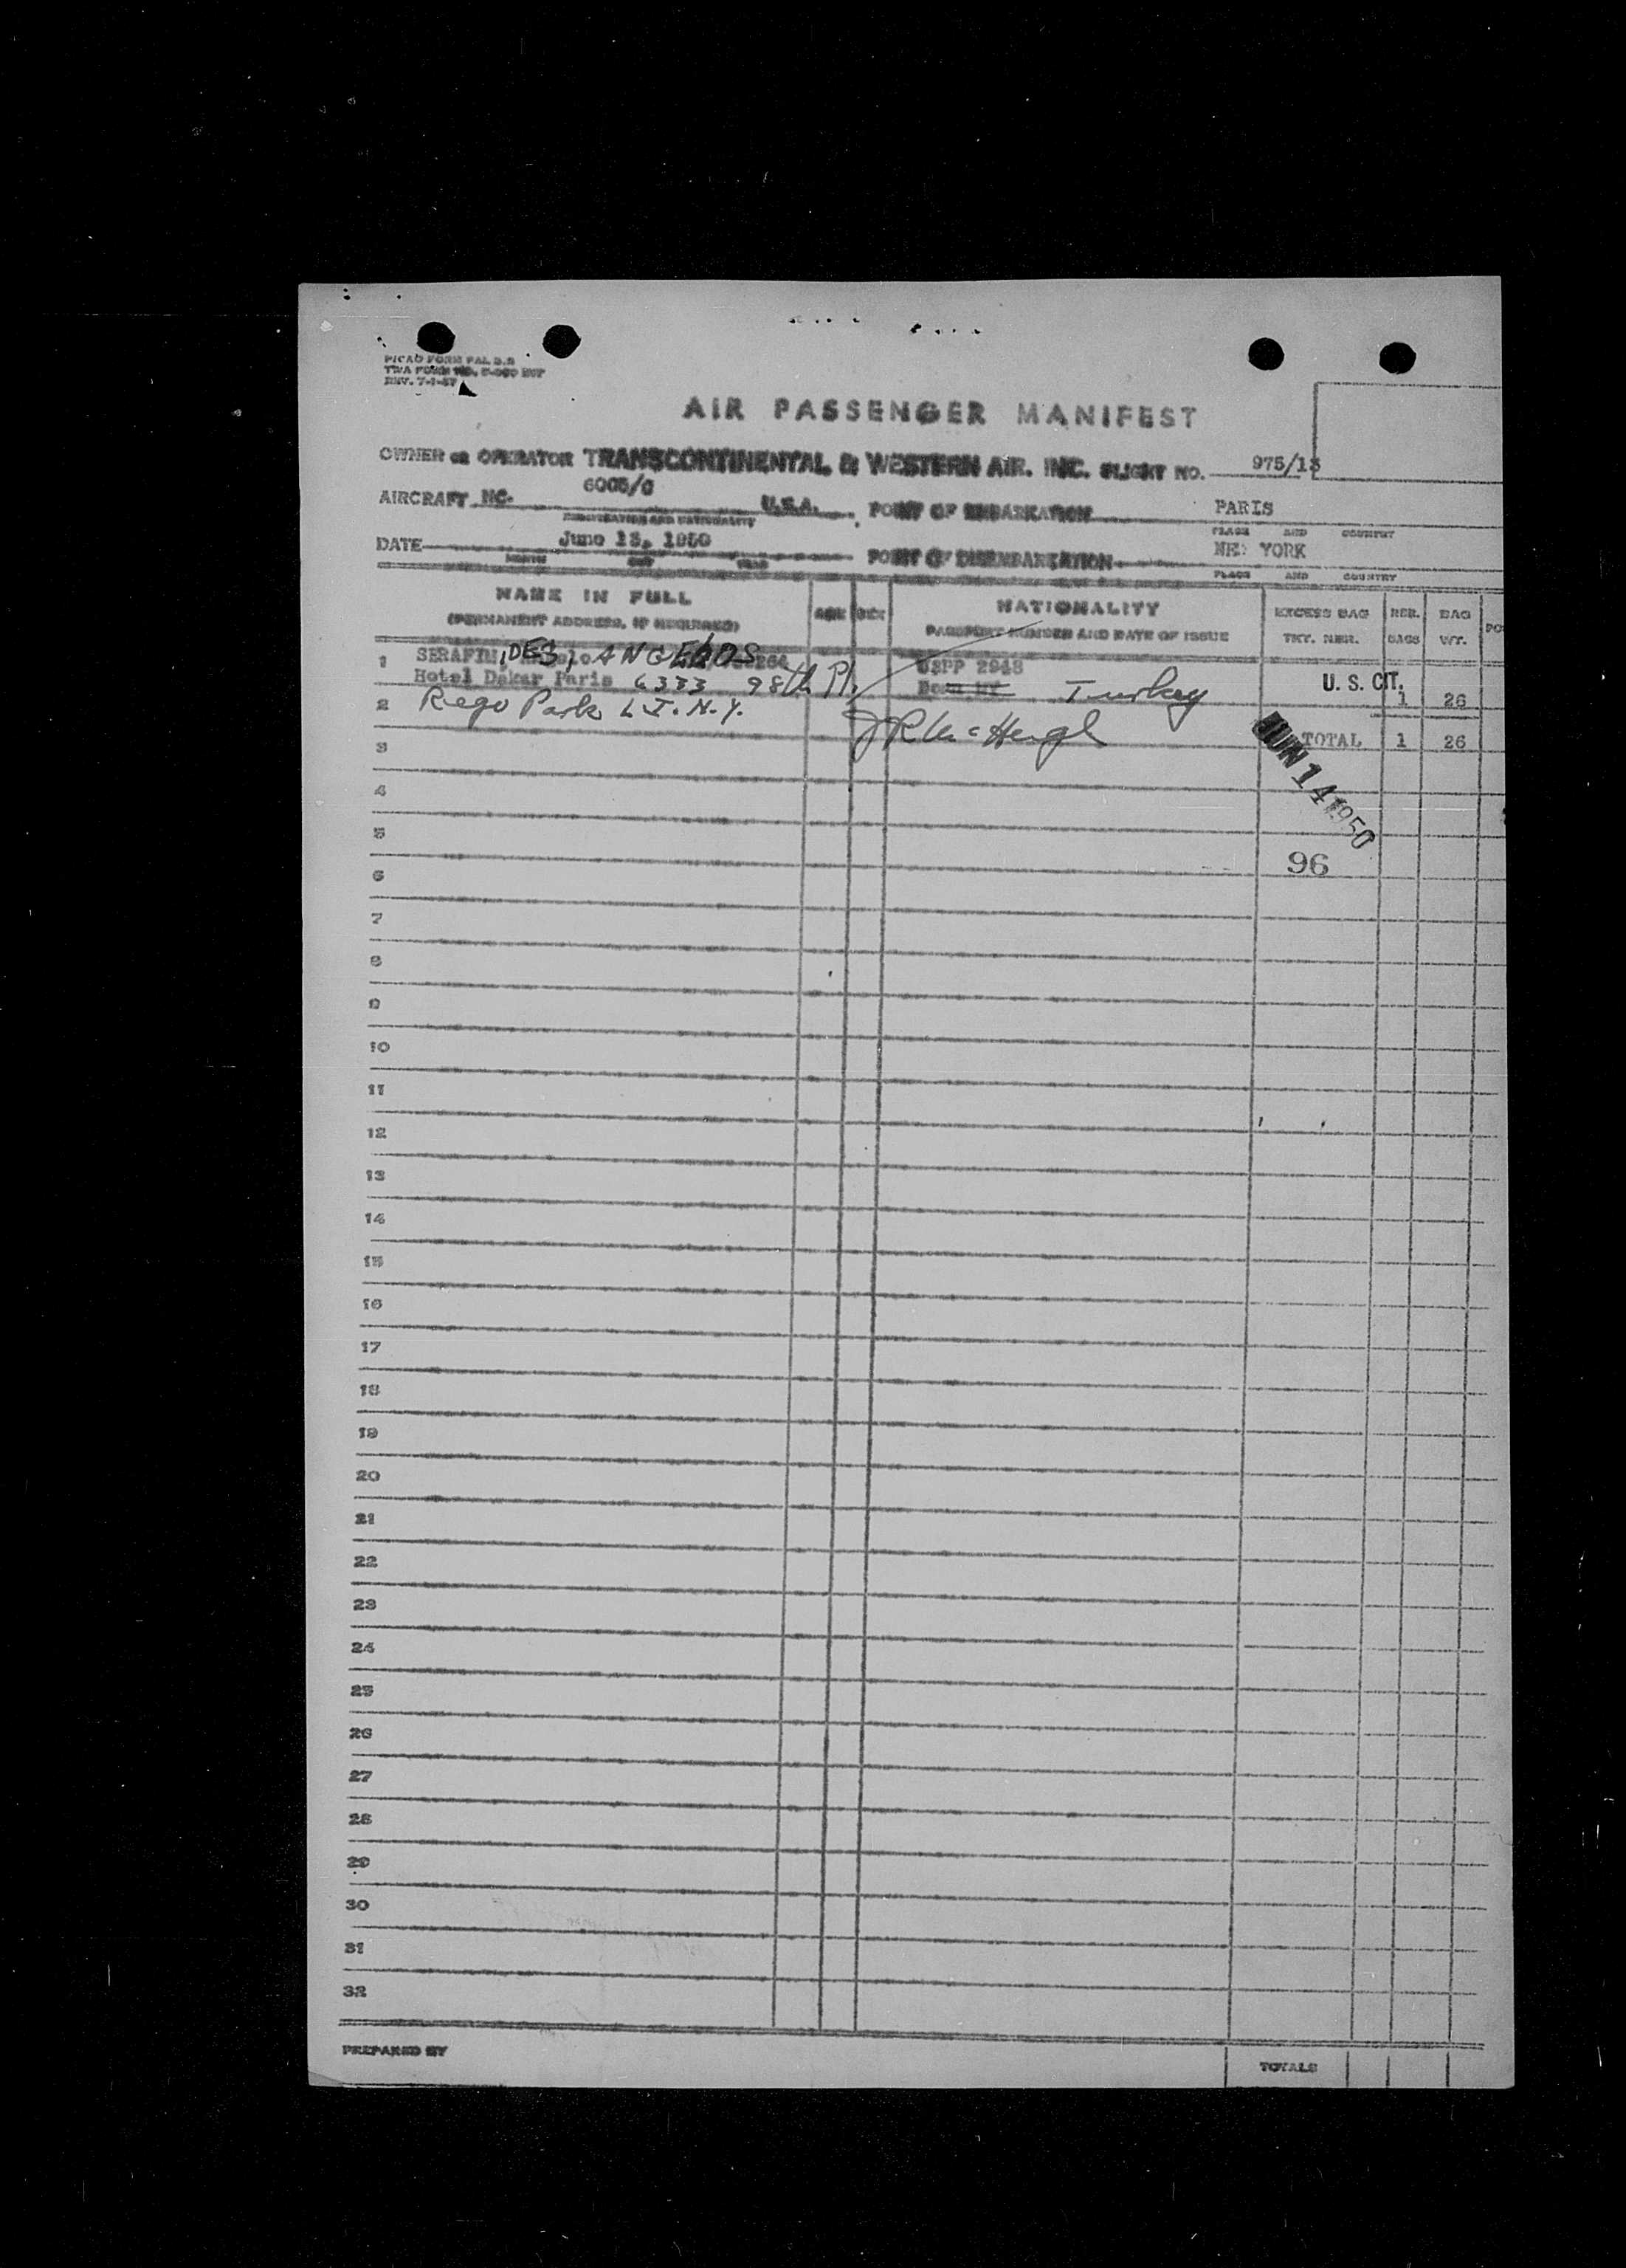 PICAO FORM PAL 2.2
TWA FORM NO.
REV. 7-1-47
AIR PASSENGER MANIFEST
OWNER OR OPERATOR TRANSCONTINENTAL & WESTERN AIR. INC. FLIGHT NO. 975/13
AIRCRAFT NO. 6005/C U.S.A. POINT OF EMBARKATION PARIS
REGISTRATION AND NATIONALITY PLACE AND COUNTRY
DATE June 13, 1950 POINT OF DISEMBARKATION NEW YORK
MONTH DAY YEAR PLACE AND COUNTRY
NAME IN FULL AGE SEX NATIONALITY EXCESS BAG NBR. BAG
(PERMANENT ADDRESS, IF REQUIRED) PASSPORT NUMBER AND DATE OF ISSUE TKT. NBR. BAGS WT. PO
1 SERAFIM DES ANGELOS USPP 2948
Hotel Dakar Paris 6333 98th Pl. Turkey U. S. CIT. 1 26
2 Rego Park L.I. N.Y.
3 TOTAL 1 26
JUN 14 1950
4
5
96
6
7
8
9
10
11
12
13
14
15
16
17
18
19
20
21
22
23
24
25
26
27
28
29
30
31
32
PREPARED BY TOTALS